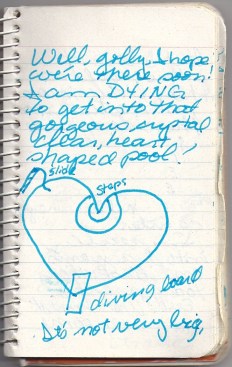 Well, golly, I hope
we're there soon.
I am DYING
to get into that
gorgeous crystal
clear, heart
shaped pool!
Slide
Steps
diving board
It's not very big,